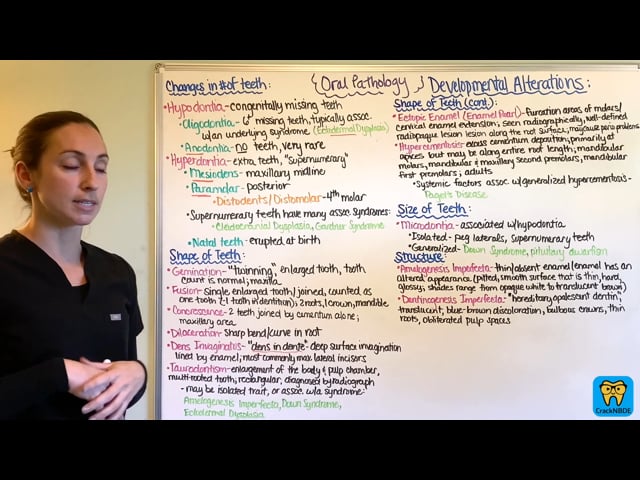 {Oral Pathology} Developmental Alterations:
Changes in # of teeth:
• Hypodontia- congenitally missing teeth
• Oligodontia- missing teeth, typically assoc.
w/an underlying syndrome (Ectodermal Dysplasia)
• Anodontia- no teeth, very rare
• Hyperdontia- extra teeth, "Supernumerary"
• Mesiodens- maxillary midline
• Paramolar- posterior
• Distodents/Distomolar- 4th molar
• Supernumerary teeth have many assoc. syndromes:
Cleidocranial Dysplasia, Gardner Syndrome
• Natal teeth- erupted at birth
Shape of Teeth:
• Gemination- "twinning", enlarged tooth, tooth
count is normal; maxilla
• Fusion- Single enlarged tooth/joined, counted as
one tooth (-1 tooth in dentition); 2 roots, 1 crown, mandible
• Concrescence- 2 teeth joined by cementum alone;
maxillary area
• Dilaceration- Sharp bend/curve in root
• Dens Invaginatus- "dens in dente" deep surface invagination
lined by enamel; most commonly max lateral incisors
• Taurodontism- enlargement of the body & pulp chamber,
multi-rooted tooth, rectangular, diagnosed by radiograph
- may be isolated trait, or assoc w/a syndrome-
Amelogenesis Imperfecta, Down Syndrome,
Ectodermal Dysplasia
Shape of Teeth (cont.):
• Ectopic Enamel (Enamel Pearl)- Furcation areas of molars/
cervical enamel extension, seen radiographically, well-defined
radiopaque lesion along the root surface, may cause perio problems
• Hypercementosis- excess cementum deposition, primarily at
apices but may be along entire root length, mandibular
molars, mandibular & maxillary second premolars, mandibular
first premolars; adults
• Systemic factors assoc w/generalized hypercementosis-
Paget's Disease
Size of Teeth:
• Microdontia- associated w/hypodontia
• Isolated- peg laterals, supernumerary teeth
• Generalized- Down Syndrome, pituitary dwarfism
Structure:
• Amelogenesis Imperfecta- thin/absent enamel (enamel has an
altered appearance (pitted, smooth surface that is thin, hard,
glossy, shades range from opaque white to translucent brown)
• Dentinogenesis Imperfecta- "hereditary, opalescent dentin,
translucent, blue-brown discoloration, bulbous crowns, thin
roots, obliterated pulp spaces
CrackNBDE